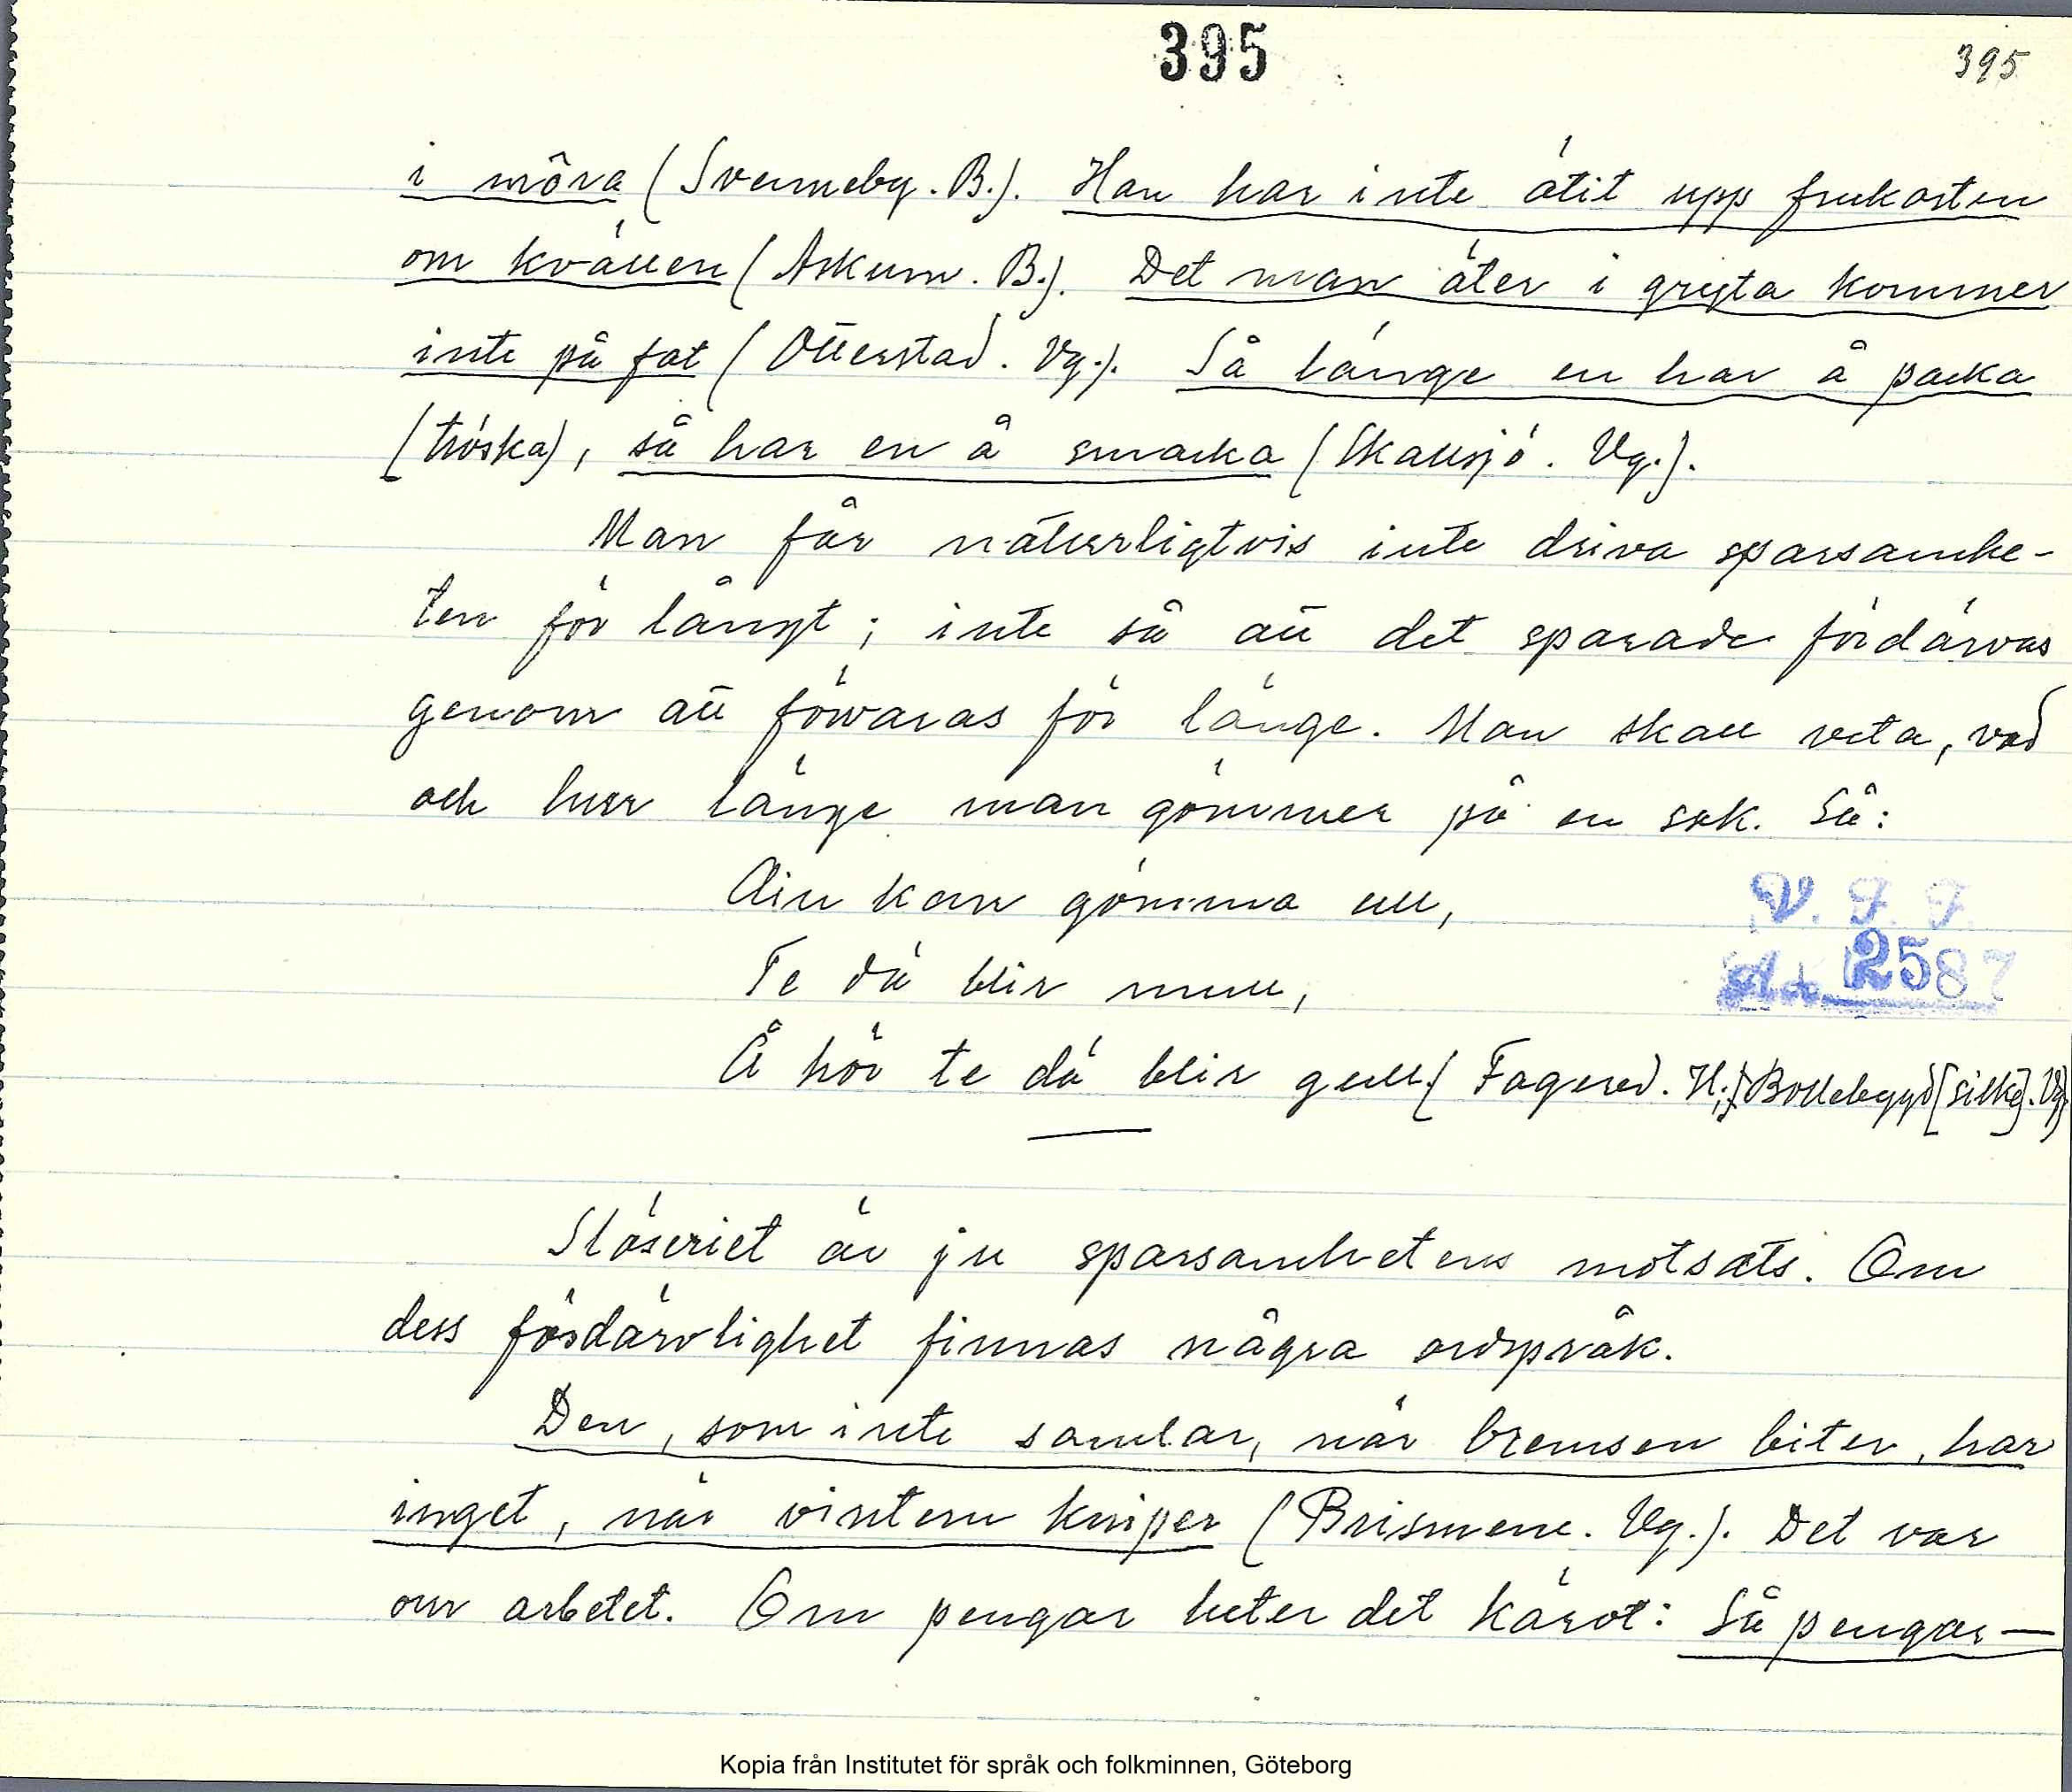 395
395
i môra (Svenneby. B.). Han har inte ätit upp frukosten
om kvällen (Askum. B.). Det man äter i gryta kommer
inte på fat (Otterstad. Vg.). Så länge en har å packa
(tröska), så har en å smacka (Skallsjö. Vg.).
Man får naturligtvis inte driva sparsamhe-
ten för långt; inte så att det sparade fördärvas
genom att förvaras för länge. Man skall veta, vad
och hur länge man gömmer på en sak. Så:
Ain kan gömma ull,
Te dä blir mull,
Å hör te dä blir gull (Fagered. H.; Bollebygd [silke]. Vg.)
V. F. F.
2587
Slöseriet är ju sparsamhetens motsats. Om
dess fördärvlighet finnas några ordspråk.
Den, som inte samlar, när bremsen biter, har
inget, när vintern kniper (Brismene. Vg.). Det var
om arbetet. Om pengar heter det kärvt: Så pengar—
Kopia från Institutet för språk och folkminnen, Göteborg